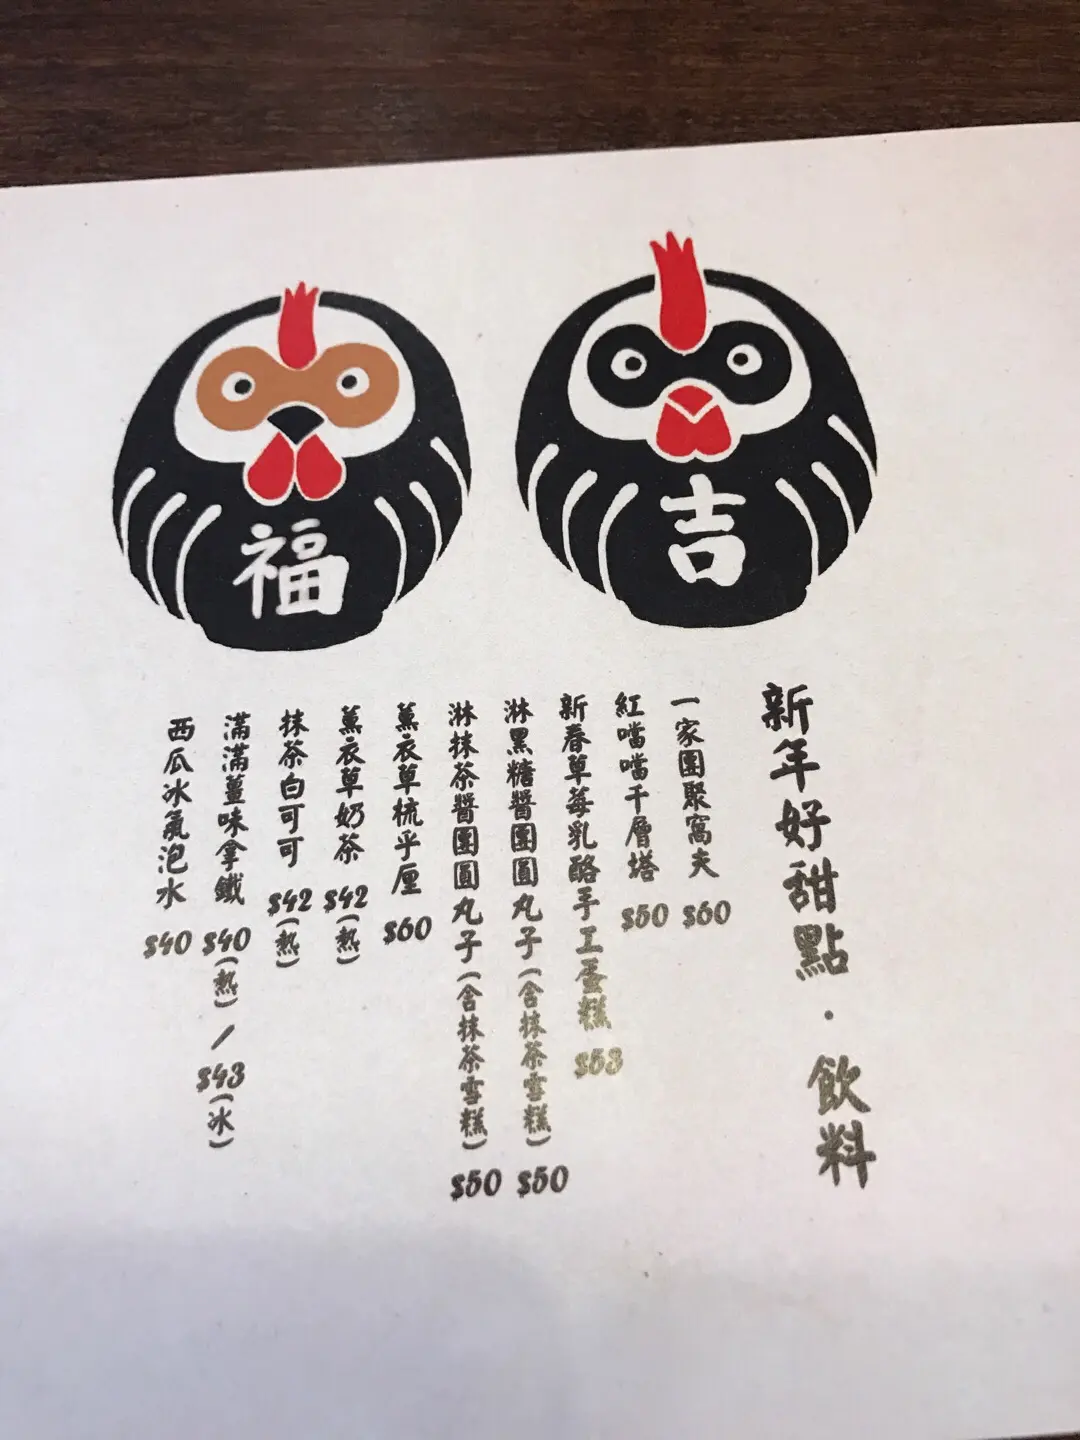 福
吉
新年好甜點·飲料
一家團聚窩夫 $60
紅噹噹千層塔 $50
新春草莓乳酪手工蛋糕 $53
淋黑糖醬團圓丸子(含抹茶雪糕) $50
淋抹茶醬團圓丸子(含抹茶雪糕) $50
薰衣草梳乎厘 $60
薰衣草奶茶 $42(熱)
抹茶白可可 $42(熱)
滿滿薑味拿鐵 $40(熱)/$43(冰)
西瓜冰氣泡水 $40